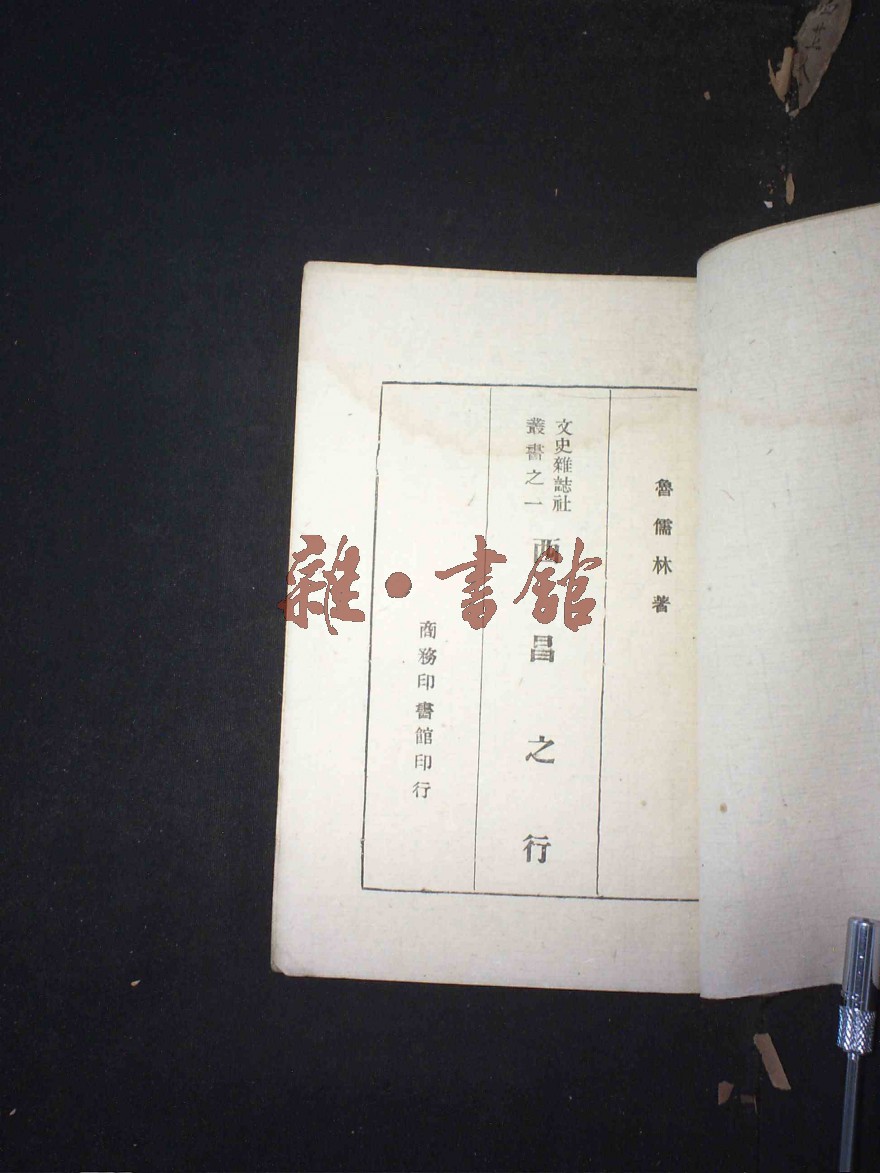 魯儒林著
文史雜誌社
叢書之一
西昌之行
商務印書館印行
雜·書館